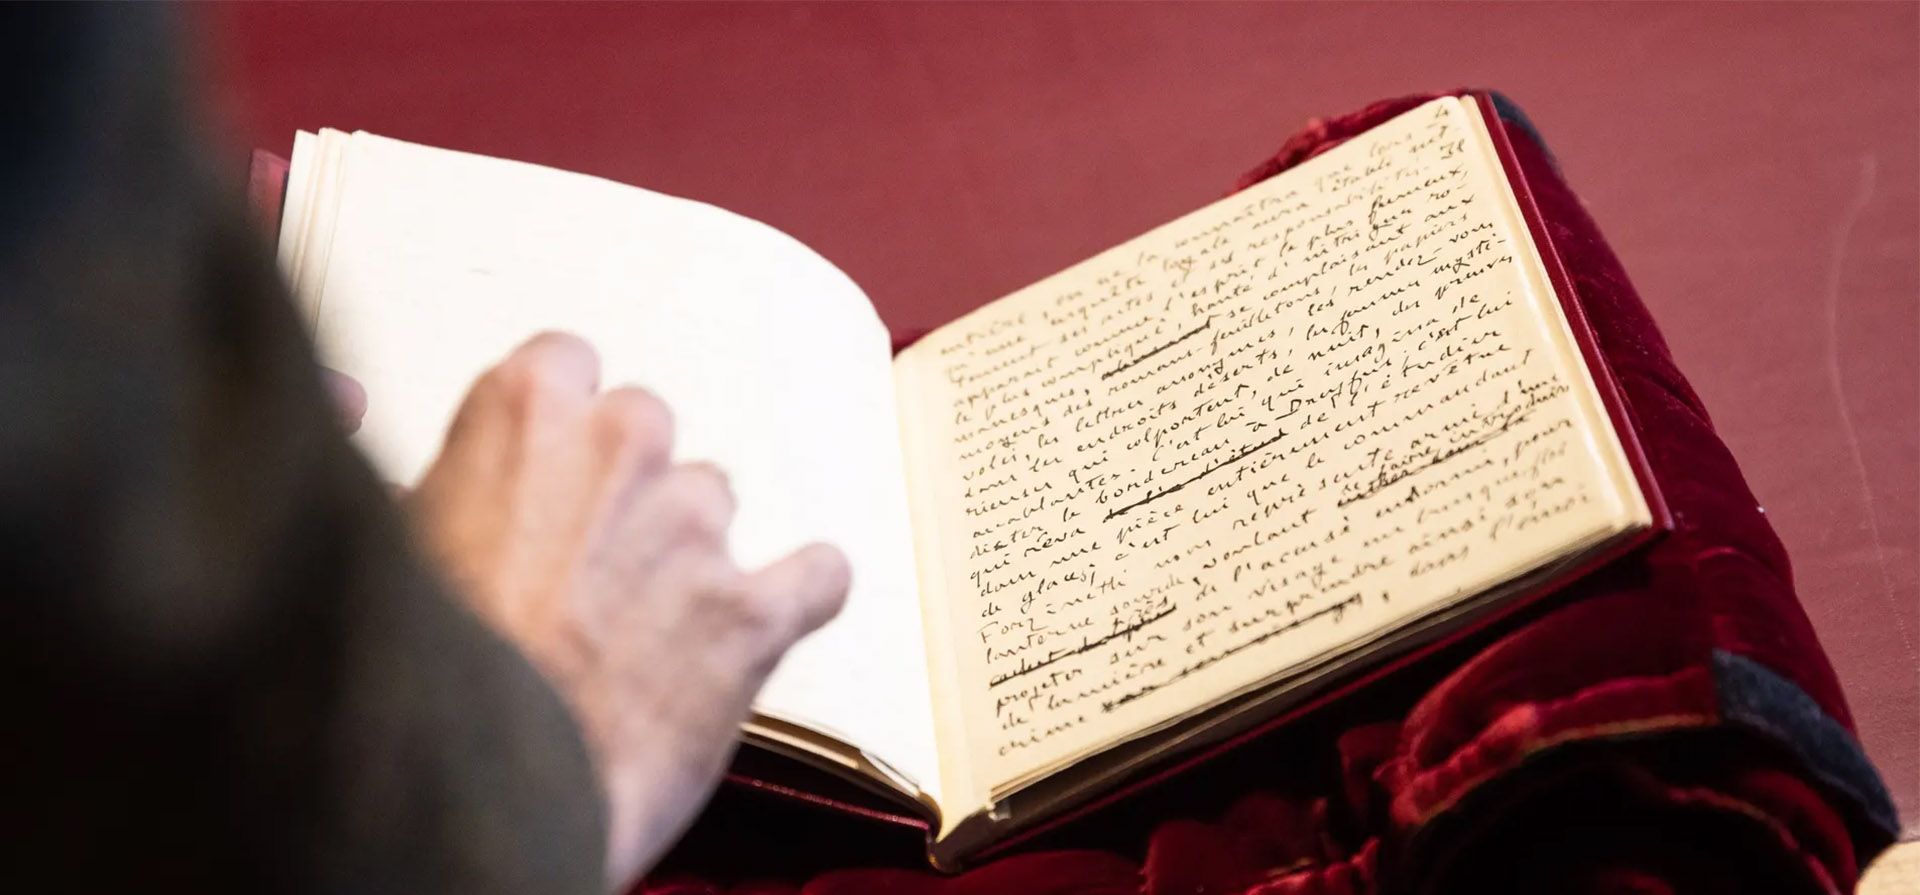 4
entière, on ne la connaîtra que lors-
qu'une enquête loyale aura établi net-
tement ses actes et ses responsabilités. Il
apparaît comme l'esprit le plus fumeux,
le plus compliqué, hanté d'intrigues ro-
manesques, se complaisant aux
moyens des romans-feuilletons, les papiers
volés, les lettres anonymes, les rendez-vous
dans les endroits déserts, les femmes mysté-
rieuses qui colportent, de nuit, des preuves
accablantes. C'est lui qui imagina de
dicter le bordereau à Dreyfus; c'est lui
qui rêva de l'étudier
dans une pièce entièrement revêtue
de glaces; c'est lui que le commandant
Forzinetti nous représente armé d'une
lanterne sourde, voulant se faire introduire
près de l'accusé endormi, pour
projeter sur son visage un brusque flot
de lumière et surprendre ainsi son
crime, dans l'émoi